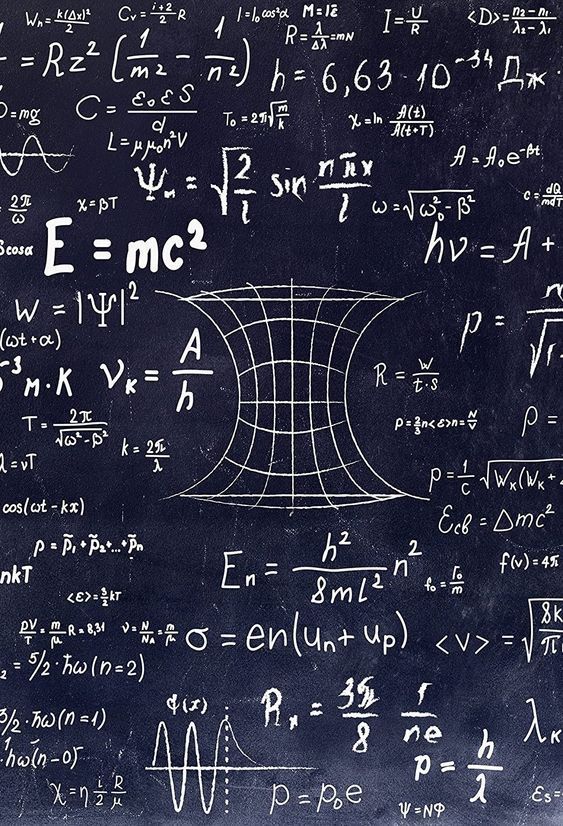 Wₙ = k(Δx)²/2   Cᵥ = (i+2)/2 R   I = I₀ cos²α   M = Iε   I = U/R   <D> = (n₂ - n₁)/(λ₂ - λ₁)
R = λ/Δλ = mN
= Rz² (1/m² - 1/n²)   h = 6,63 · 10⁻³⁴ Дж ·
= mg   C = ε₀εS/d   T₀ = 2π√(m/k)   χ = ln A(t)/A(t+T)
L = μμ₀n²V
A = A₀e^(-βt)
Ψₙ = √(2/l) sin nπx/l
= 2π/ω   χ = βT   ω = √(ω₀² - β²)   c = dQ/mdT
cosα   E = mc²   hν = A +
W = |Ψ|²   p =
(ωt + α)
⁻³ м·К   νₖ = A/h   R = W/t·s
T = 2π/√(ω² - β²)   p = 2/3 n<ε> n = N/V   ρ =
λ = νT   k = 2π/λ
p = 1/c √(Wₖ(Wₖ +
cos(ωt - kx)   Eсв = Δmc²
p = p̃₁ + p̃₂ + ... + p̃ₙ
nkT   Eₙ = h²/8ml² n²   f(v) = 4π
<ε> = 3/2 kT   f₀ = r₀/m
pV/T = m/μ R = 8,31   ν = N/Nᴀ = m/μ   σ = en(uₙ + uₚ)   <v> = √(8k
₂ = 5/2 · ħω (n=2)
3/2 · ħω (n=1)   φ(x)   Rₓ = 3π/8 1/ne   λₖ
· ħω (n-0)   p = h/λ
χ = η i/2 R/μ   p = p₀e   Ψ = NФ   εₛ =